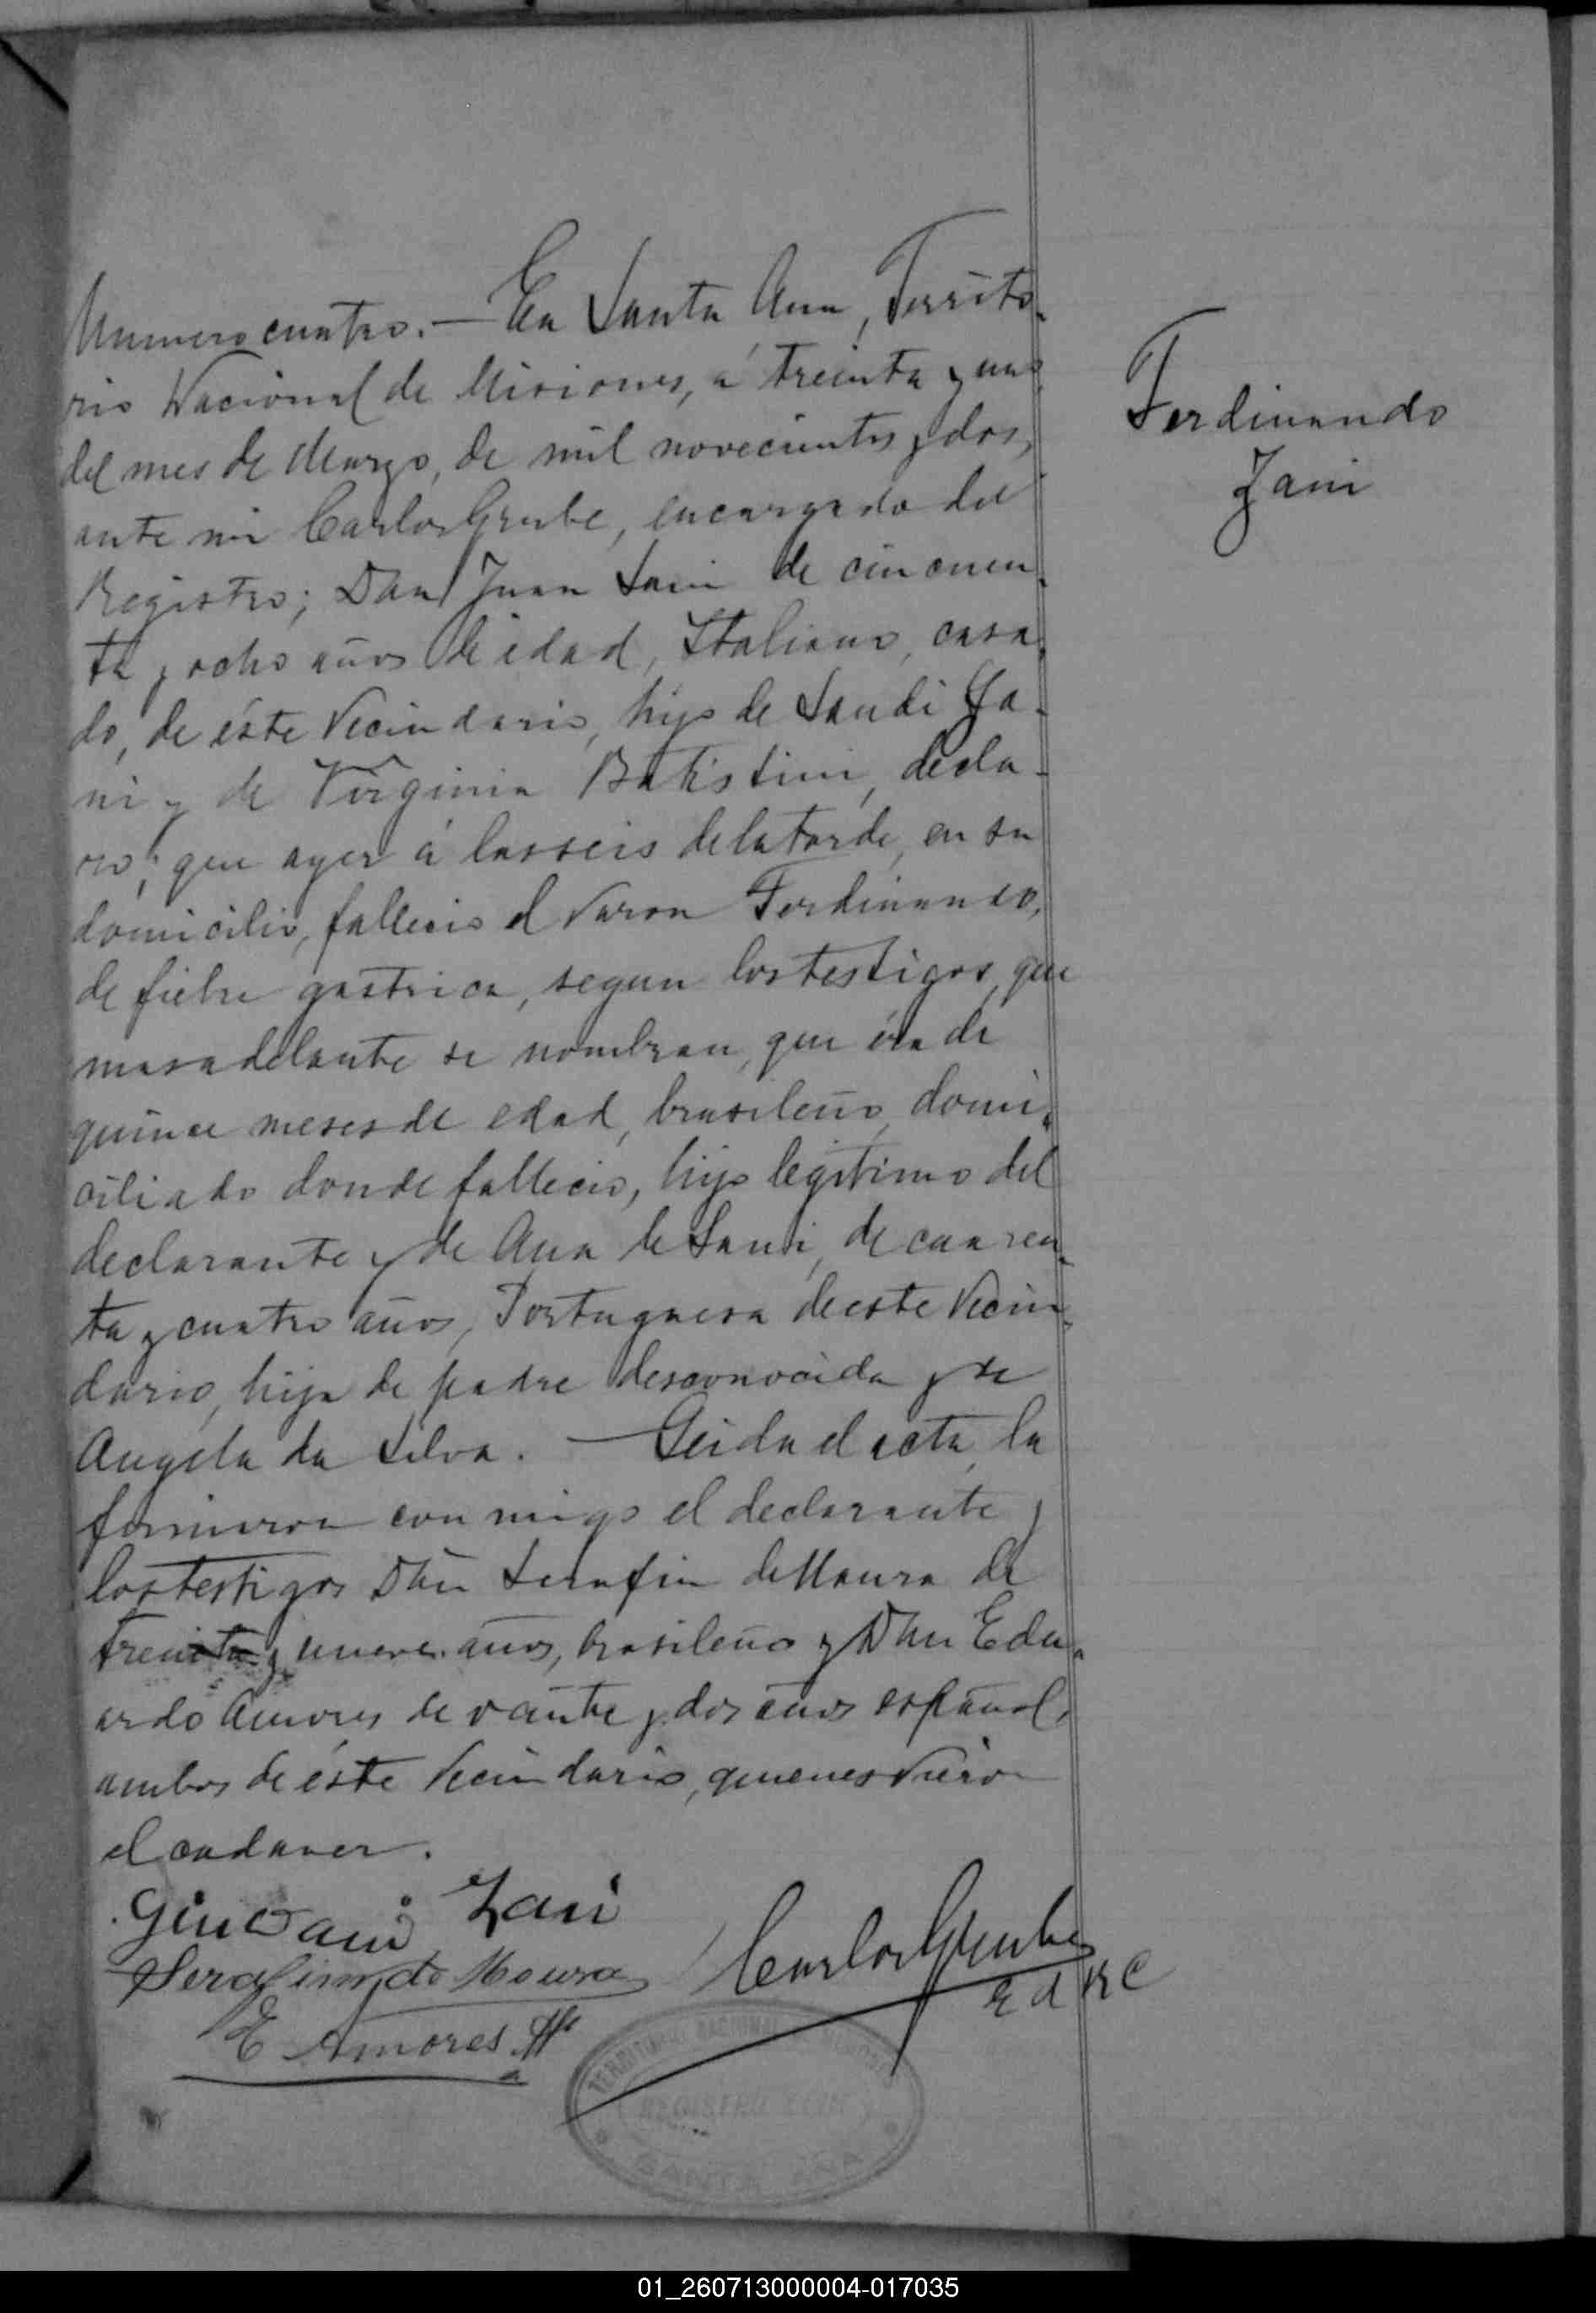 Numero cuatro. — En Santa Ana, Territo-
rio Nacional de Misiones, á treinta y uno
del mes de Marzo, de mil novecientos y dos,
ante mi Carlos Grube, encargado del
Registro; Don Juan Zani de cincuen-
ta y ocho años de edad, Italiano, casa-
do, de éste Vecindario, hijo de Za-
ni y de Virginia Batistini, decla-
ro; que ayer á las seis de la tarde, en su
domicilio, fallecio el varon Ferdinando,
de fiebre gastrica, segun los testigos, que
mas adelante se nombran, que éra de
quince meses de edad, brasileño, domi-
ciliado donde fallecio, hijo legitimo del
declarante y de Ana de Zani, de cuaren-
ta y cuatro años, Portuguesa de este Vecin-
dario, hija de padre desconocido y de
Angela da Silva. — Leida el acta, la
firmaron con migo el declarante y
los testigos Don Serafin de Moura de
treinta y nueve años, brasileño y Don Edu-
ardo Amores de vainte y dos años español,
ambos de éste Vecindario, quienes vieron
el cadaver.
Ferdinando
Zani
Giovani Zani
Serafim de Moura
E Amores
Carlos Grube
E d R C
TERRITORIO NACIONAL
REGISTRO CIVIL
SANTA ANA
01_260713000004-017035